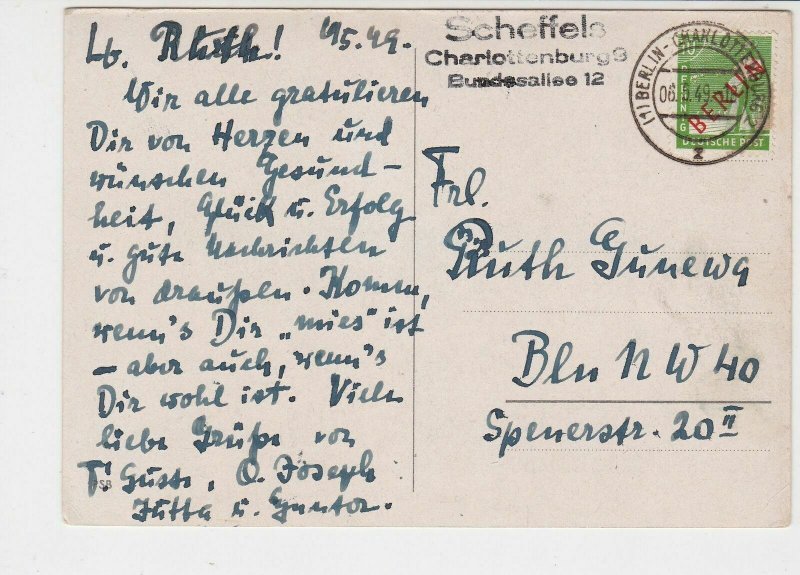 Lb. Ruth! 4/5.49.
Wir alle gratulieren
Dir von Herzen und
wünschen Gesund-
heit, Glück u. Erfolg
u. gute Nachrichten
von draußen. Komm,
wenn's Dir „mies" ist
– aber auch, wenn's
Dir wohl ist. Viele
liebe Grüße von
T. Guste, O. Joseph
Jutta u. Guntor.
SB
Scheffels
Charlottenburg 9
Bundesallee 12
(1) BERLIN-CHARLOTTENBURG 2
06.5.49
z
BERLIN
DEUTSCHE POST
Frl.
Ruth Gunewa
Bln NW 40
Spenerstr. 20 II